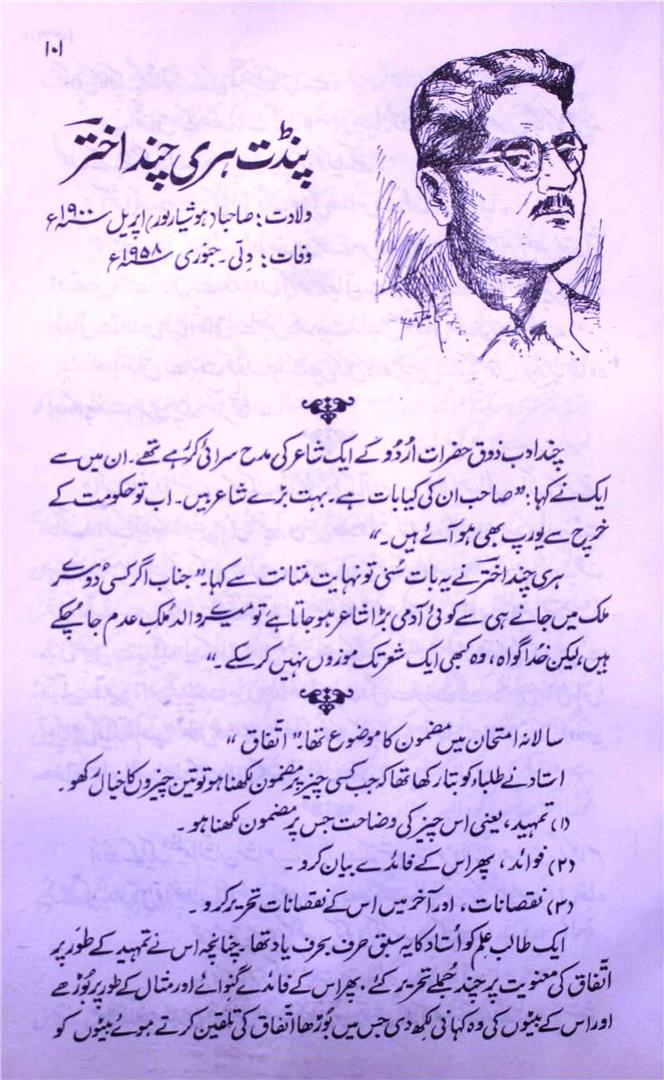 ۱۰۱
پنڈت ہری چند اختر
ولادت: صاحبا (ہوشیارپور) اپریل ۱۹۰۰ء
وفات: دِلّی۔ جنوری ۱۹۵۸ء
چند ادب ذوق حضرات اُردُو کے ایک شاعر کی مدح سرائی کر رہے تھے۔ ان میں سے
ایک نے کہا: "صاحب ان کی کیا بات ہے۔ بہت بڑے شاعر ہیں۔ اب تو حکومت کے
خرچ سے یورپ بھی ہو آئے ہیں۔"
ہری چند اختر نے یہ بات سُنی تو نہایت متانت سے کہا: "جناب اگر کسی دُوسرے
ملک میں جانے ہی سے کوئی آدمی بڑا شاعر ہو جاتا ہے تو میرے والد مُلکِ عدم جا چُکے
ہیں، لیکن خُدا گواہ، وہ کبھی ایک شعر تک موزوں نہیں کر سکے۔"
سالانہ امتحان میں مضمون کا موضوع تھا: "اتفاق"
استاد نے طلباء کو بتا رکھا تھا کہ جب کسی چیز پر مضمون لکھنا ہو تو تین چیزوں کا خیال رکھو۔
(۱) تمہید، یعنی اس چیز کی وضاحت جس پر مضمون لکھنا ہو۔
(۲) فوائد، پھر اس کے فائدے بیان کرو۔
(۳) نقصانات، اور آخر میں اس کے نقصانات تحریر کرو۔
ایک طالب علم کو اُستاد کا یہ سبق حرف بحرف یاد تھا۔ چنانچہ اس نے تمہید کے طور پر
اتفاق کی معنویت پر چند جُملے تحریر کئے، پھر اس کے فائدے گنوائے اور مثال کے طور پر بُوڑھے
اور اس کے بیٹوں کی وہ کہانی لکھ دی جس میں بُوڑھا اتفاق کی تلقین کرتے ہوئے بیٹوں کو